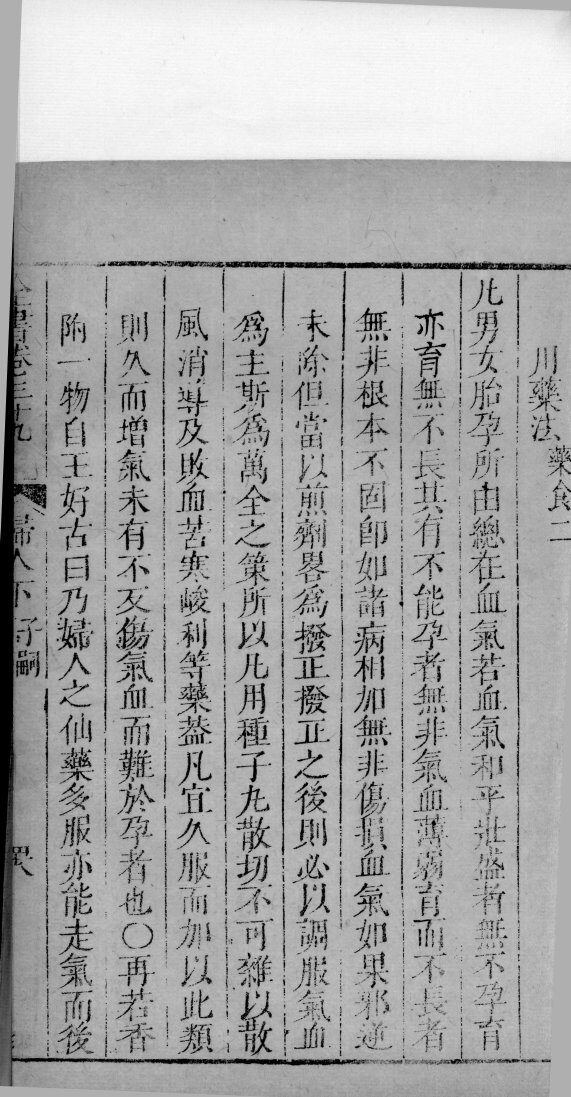 用藥法 藥食二
凡男女胎孕所由總在血氣若血氣和平壯盛者無不孕育
亦育無不長其有不能孕者無非氣血薄弱育而不長者
無非根本不固卽如諸病相加無非傷損血氣如果邪逆
未除但當以煎劑畧爲撥正撥正之後則必以調服氣血
爲主斯爲萬全之策所以凡用種子丸散切不可雜以散
風消導及敗血苦寒峻利等藥葢凡宜久服而加以此類
則久而增氣未有不反傷氣血而難於孕者也○再若香
附一物自王好古曰乃婦人之仙藥多服亦能走氣而後
全書卷三十九 婦人下 子嗣